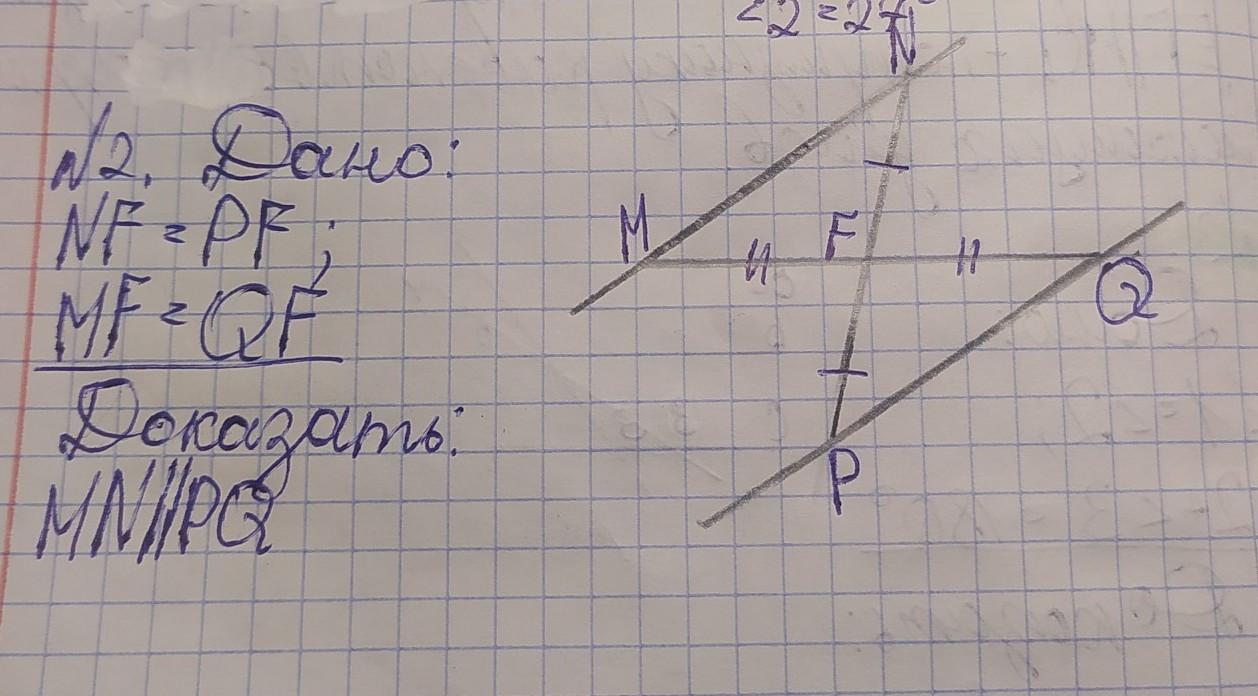 №2. Дано:
NF = PF;
MF = QF
Доказать:
MN||PQ
N
M
F
Q
P